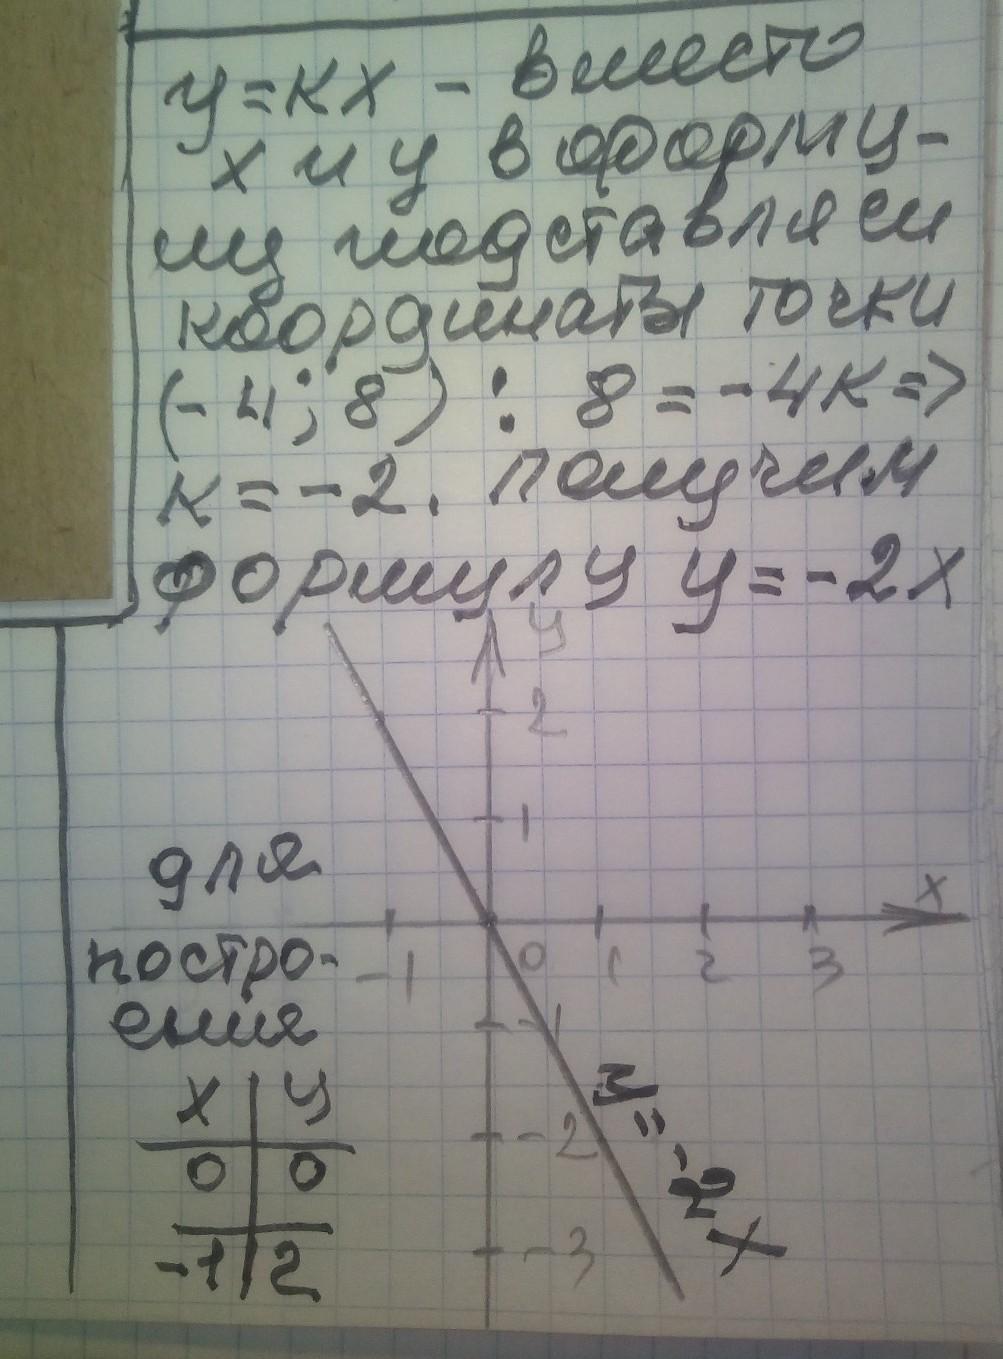 y=кx - вместо
x и y в форму-
лу подставляем
координаты точки
(-4; 8) : 8 = -4к =>
к = -2. Получим
формулу y = -2x
y
2
1
x
-1 0 1 2 3
-1
-2
-3
y = -2x
для
постро-
ения
x y
0 0
-1 2